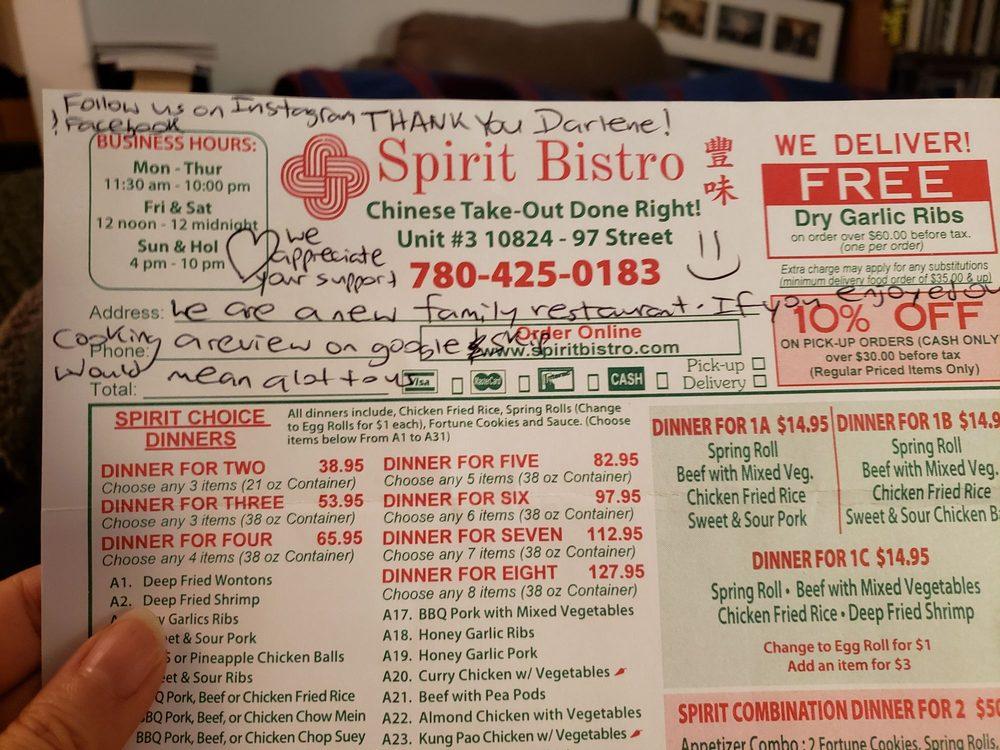 Follow us on Instagram THANK YOU Darlene!
! Facebook
BUSINESS HOURS:
Mon - Thur
11:30 am - 10:00 pm
Fri & Sat
12 noon - 12 midnight
Sun & Hol
4 pm - 10 pm
Spirit Bistro
豐味
Chinese Take-Out Done Right!
Unit #3 10824 - 97 Street
780-425-0183
we
appreciate
your support
WE DELIVER!
FREE
Dry Garlic Ribs
on order over $60.00 before tax.
(one per order)
Extra charge may apply for any substitutions
(minimum delivery food order of $35.00 & up)
10% OFF
ON PICK-UP ORDERS (CASH ONLY
over $30.00 before tax
(Regular Priced Items Only)
Address:
we are a new family restaurant. If you enjoyed our
Cooking a review on google & skip
would mean a lot to us
Phone:
Total:
Order Online
www.spiritbistro.com
Visa
MasterCard
CASH
Pick-up
Delivery
SPIRIT CHOICE
DINNERS
All dinners include, Chicken Fried Rice, Spring Rolls (Change
to Egg Rolls for $1 each), Fortune Cookies and Sauce. (Choose
items below From A1 to A31)
DINNER FOR TWO 38.95
Choose any 3 items (21 oz Container)
DINNER FOR THREE 53.95
Choose any 3 items (38 oz Container)
DINNER FOR FOUR 65.95
Choose any 4 items (38 oz Container)
A1. Deep Fried Wontons
A2. Deep Fried Shrimp
Garlics Ribs
et & Sour Pork
S or Pineapple Chicken Balls
et & Sour Ribs
BQ Pork, Beef or Chicken Fried Rice
BBQ Pork, Beef, or Chicken Chow Mein
BBQ Pork, Beef, or Chicken Chop Suey
DINNER FOR FIVE 82.95
Choose any 5 items (38 oz Container)
DINNER FOR SIX 97.95
Choose any 6 items (38 oz Container)
DINNER FOR SEVEN 112.95
Choose any 7 items (38 oz Container)
DINNER FOR EIGHT 127.95
Choose any 8 items (38 oz Container)
A17. BBQ Pork with Mixed Vegetables
A18. Honey Garlic Ribs
A19. Honey Garlic Pork
A20. Curry Chicken w/ Vegetables
A21. Beef with Pea Pods
A22. Almond Chicken with Vegetables
A23. Kung Pao Chicken w/ Vegetables
DINNER FOR 1A $14.95
Spring Roll
Beef with Mixed Veg.
Chicken Fried Rice
Sweet & Sour Pork
DINNER FOR 1B $14.9
Spring Roll
Beef with Mixed Veg.
Chicken Fried Rice
Sweet & Sour Chicken Ba
DINNER FOR 1C $14.95
Spring Roll • Beef with Mixed Vegetables
Chicken Fried Rice • Deep Fried Shrimp
Change to Egg Roll for $1
Add an item for $3
SPIRIT COMBINATION DINNER FOR 2 $50
Appetizer Combo : 2 Fortune Cookies, Spring Rolls